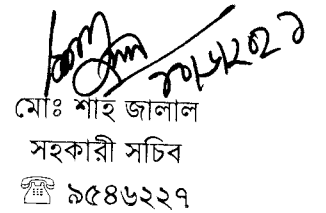 মোঃ শাহ জালাল
সহকারী সচিব
☏ ৯৫৪৬২২৭